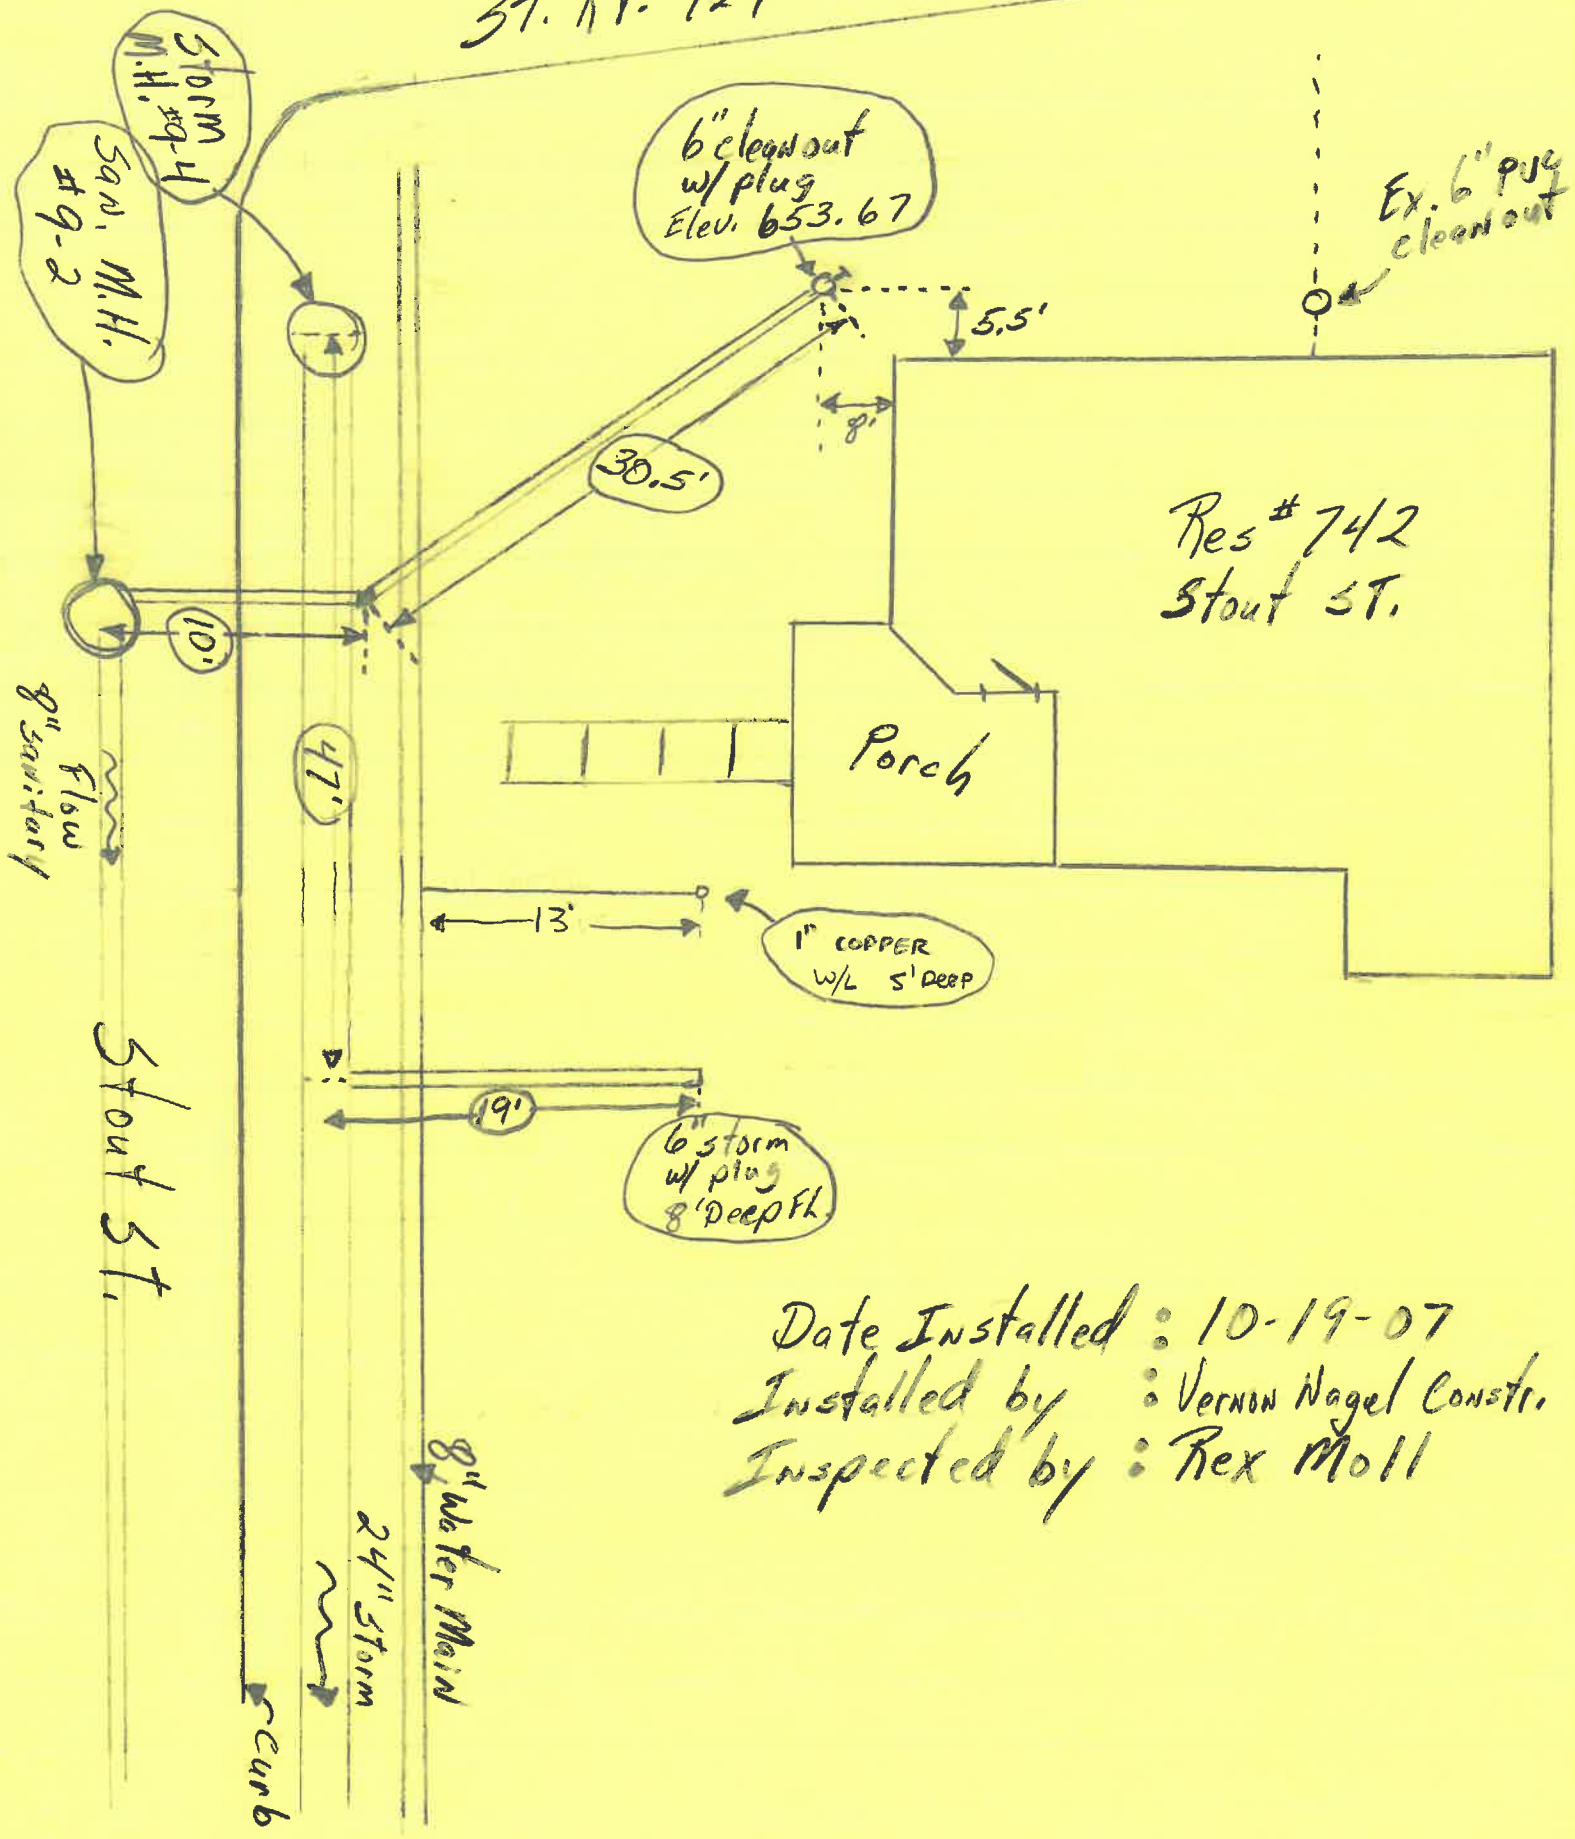 Storm
M.H. #9-4
San. M.H.
#9-2
6" cleanout
w/ plug
Elev. 653.67
Ex. 6" PVC
cleanout
5.5'
8'
30.5'
Res # 742
Stout ST.
10'
47'
Porch
Flow
8" sanitary
13'
1" COPPER
W/L 5' DEEP
19'
6" storm
w/ plug
8' Deep FL.
Stout St.
Date Installed : 10-19-07
Installed by : Vernon Nagel Constr.
Inspected by : Rex Moll
8" Water Main
24" Storm
Curb